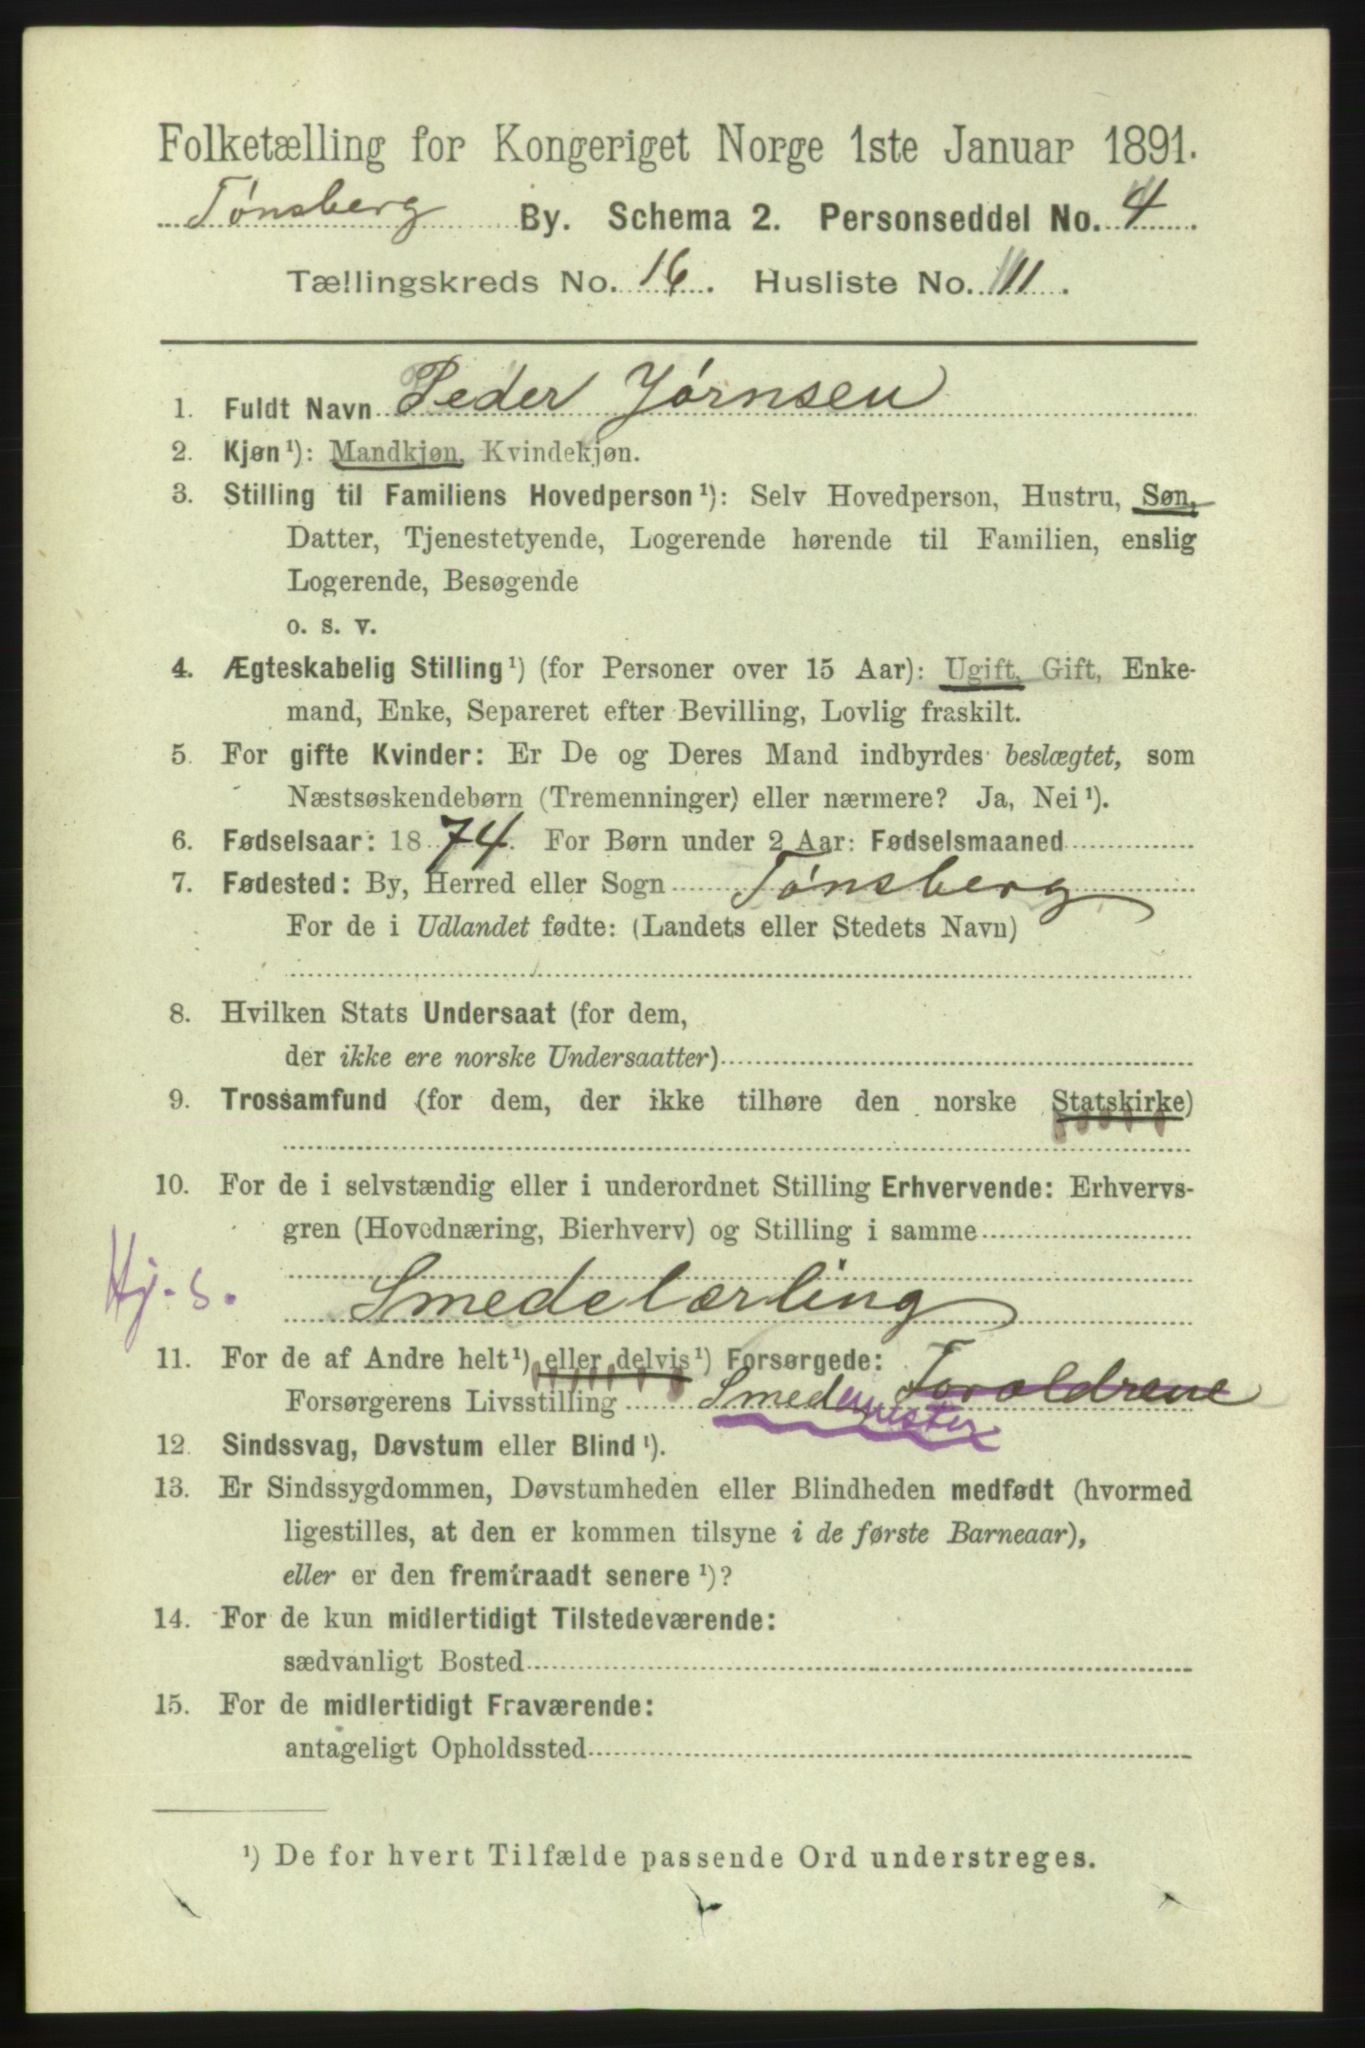 Folketælling for Kongeriget Norge 1ste Januar 1891.
Tønsberg By. Schema 2. Personseddel No. 4.
Tællingskreds No. 16. Husliste No. 111.
1. Fuldt Navn Peder Jørnsen
2. Kjøn¹): Mandkjøn, Kvindekjøn.
3. Stilling til Familiens Hovedperson¹): Selv Hovedperson, Hustru, Søn,
Datter, Tjenestetyende, Logerende hørende til Familien, enslig
Logerende, Besøgende
o. s. v.
4. Ægteskabelig Stilling¹) (for Personer over 15 Aar): Ugift, Gift, Enke-
mand, Enke, Separeret efter Bevilling, Lovlig fraskilt.
5. For gifte Kvinder: Er De og Deres Mand indbyrdes beslægtet, som
Næstsøskendebørn (Tremenninger) eller nærmere? Ja, Nei¹).
6. Fødselsaar: 1874. For Børn under 2 Aar: Fødselsmaaned
7. Fødested: By, Herred eller Sogn Tønsberg
For de i Udlandet fødte: (Landets eller Stedets Navn)
8. Hvilken Stats Undersaat (for dem,
der ikke ere norske Undersaatter)
9. Trossamfund (for dem, der ikke tilhøre den norske Statskirke)
10. For de i selvstændig eller i underordnet Stilling Erhvervende: Erhvervs-
gren (Hovednæring, Bierhverv) og Stilling i samme
Hj. s. Smedelærling
11. For de af Andre helt¹) eller delvis¹) Forsørgede:
Forsørgerens Livsstilling Smedemester Foroldrene
12. Sindssvag, Døvstum eller Blind¹).
13. Er Sindssygdommen, Døvstumheden eller Blindheden medfødt (hvormed
ligestilles, at den er kommen tilsyne i de første Barneaar),
eller er den fremtraadt senere¹)?
14. For de kun midlertidigt Tilstedeværende:
sædvanligt Bosted
15. For de midlertidigt Fraværende:
antageligt Opholdssted
¹) De for hvert Tilfælde passende Ord understreges.